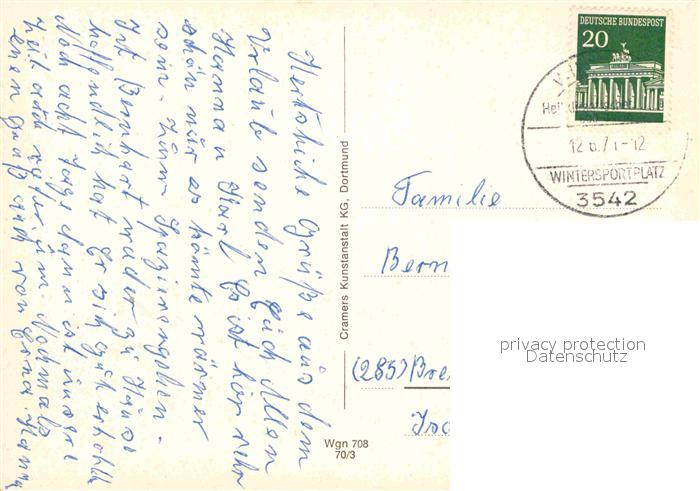 Herzliche Grüße aus dem
Urlaub senden Euch Allen
Hanna u Karl Es ist hier sehr
schön nur es könnte wärmer
sein. Zum Spazierengehen.
Ist Bernhart wieder zu Hause
hoffendlich hat Er sich gut erhohlt
Noch acht Tage dann ist unsere
Zeit auch wieder um. Nochmals
einen Gruß auch von Erna. Hanna
Cramers Kunstanstalt KG, Dortmund
Wgn 708
70/3
DEUTSCHE BUNDESPOST
20
12.6.71-12
WINTERSPORTPLATZ
3542
Familie
Bern
(285) Bre
privacy protection
Datenschutz